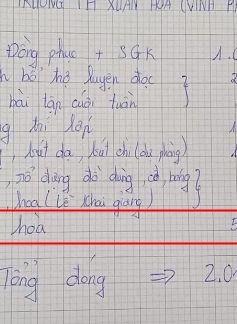 TRƯỜNG TH XUÂN HÒA (VĨNH P
Đồng phục + SGK 1.
bổ trợ luyện đọc } 2
bài tập cuối tuần
g thi lần 1
, bút dạ, bút chì (dự phòng)
đựng đồ dùng, cờ, bóng }
, hoa (Lễ khai giảng)
hoà 5
Tổng đóng ⇒ 2.0